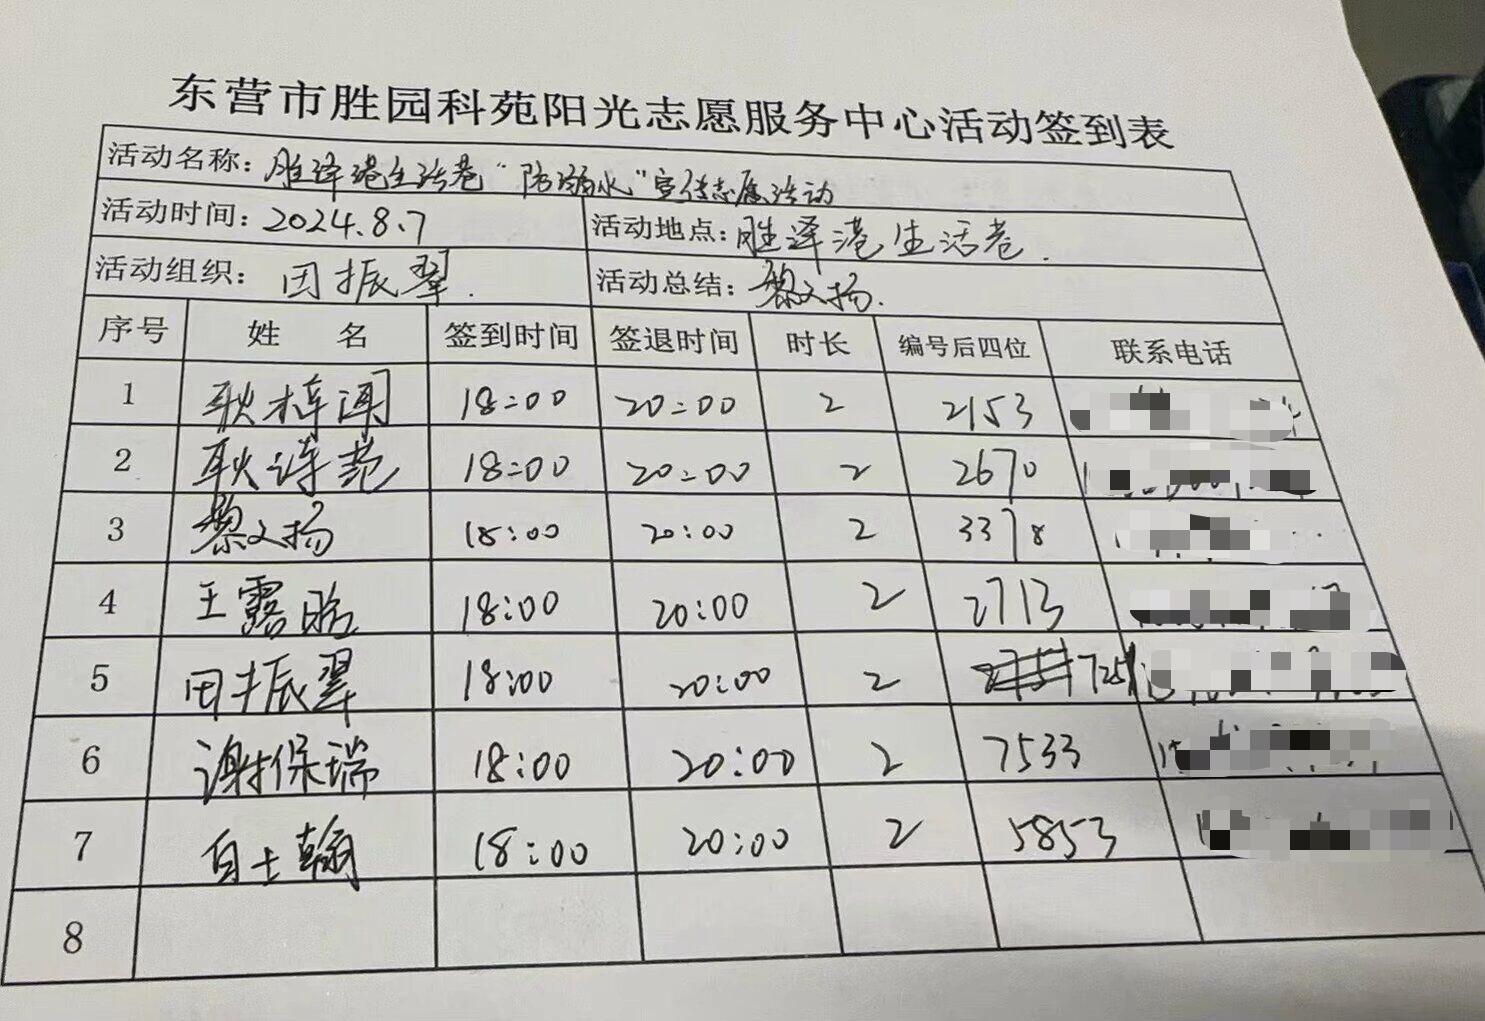 东营市胜园科苑阳光志愿服务中心活动签到表
活动名称：胜泽港生活巷“防溺水”宣传志愿活动
活动时间：2024.8.7 活动地点：胜泽港生活巷.
活动组织：田振翠. 活动总结：黎文扬.
序号 姓 名 签到时间 签退时间 时长 编号后四位 联系电话
1 耿梓润 18:00 20:00 2 2153
2 耿诗苑 18:00 20:00 2 2670
3 黎文扬 18:00 20:00 2 3378
4 王露晗 18:00 20:00 2 2713
5 田振翠 18:00 20:00 2 7251
6 谢保瑞 18:00 20:00 2 7533
7 自士翰 18:00 20:00 2 5853
8